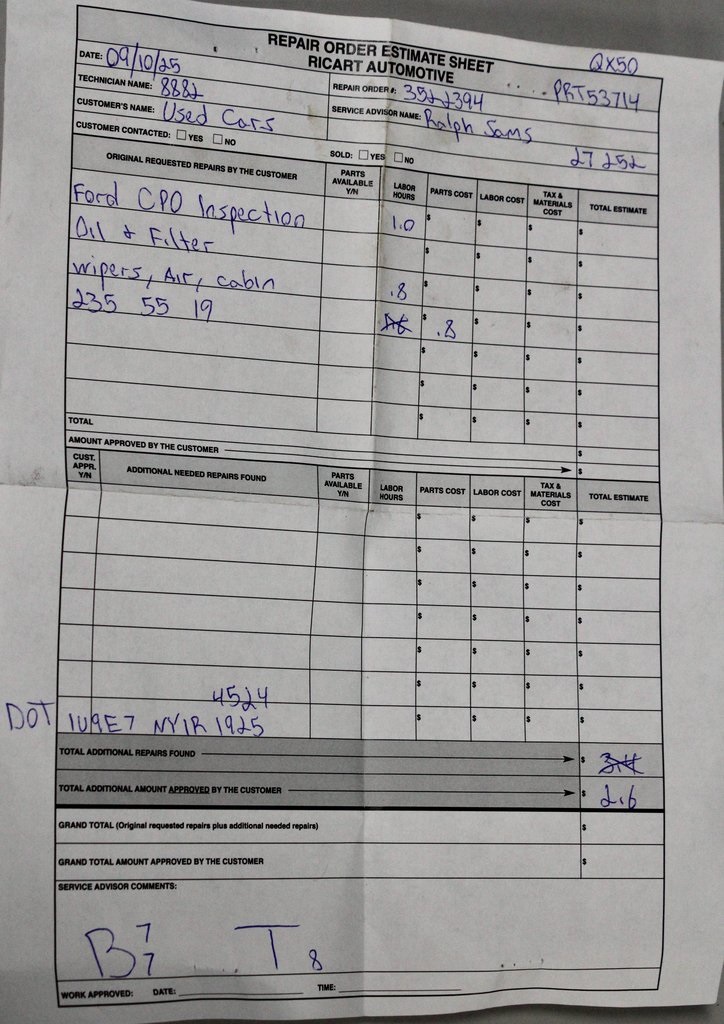 REPAIR ORDER ESTIMATE SHEET
RICART AUTOMOTIVE
QX50
DATE: 09/10/25
PRT53714
TECHNICIAN NAME: 8882
REPAIR ORDER #: 3522394
CUSTOMER'S NAME: Used Cars
SERVICE ADVISOR NAME: Ralph Sams
CUSTOMER CONTACTED: YES NO
SOLD: YES NO
27252
ORIGINAL REQUESTED REPAIRS BY THE CUSTOMER PARTS AVAILABLE Y/N LABOR HOURS PARTS COST LABOR COST TAX & MATERIALS COST TOTAL ESTIMATE
Ford CPO Inspection 1.0 $ $ $ $
Oil & Filter $ $ $ $
wipers, Air, cabin .8 $ $ $ $
235 55 19 $ .8 $ $ $
$ $ $ $
$ $ $ $
$ $ $ $
TOTAL $
AMOUNT APPROVED BY THE CUSTOMER $
CUST. APPR. Y/N ADDITIONAL NEEDED REPAIRS FOUND PARTS AVAILABLE Y/N LABOR HOURS PARTS COST LABOR COST TAX & MATERIALS COST TOTAL ESTIMATE
$ $ $ $
$ $ $ $
$ $ $ $
$ $ $ $
$ $ $ $
4524 $ $ $ $
DOT 1U9E7 NY1R 1925 $ $ $ $
TOTAL ADDITIONAL REPAIRS FOUND $ 3.4
TOTAL ADDITIONAL AMOUNT APPROVED BY THE CUSTOMER $ 2.6
GRAND TOTAL (Original requested repairs plus additional needed repairs) $
GRAND TOTAL AMOUNT APPROVED BY THE CUSTOMER $
SERVICE ADVISOR COMMENTS:
B 7 7 T 8
WORK APPROVED: DATE: TIME: